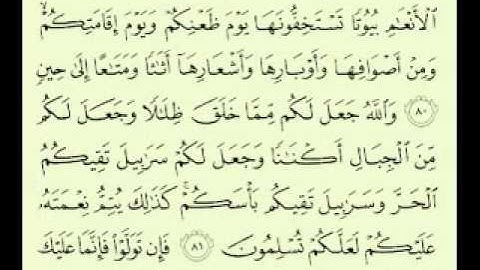 ٱلْأَنْعَٰمِ بُيُوتًا تَسْتَخِفُّونَهَا يَوْمَ ظَعْنِكُمْ وَيَوْمَ إِقَامَتِكُمْ ۙ
وَمِنْ أَصْوَافِهَا وَأَوْبَارِهَا وَأَشْعَارِهَآ أَثَٰثًا وَمَتَٰعًا إِلَىٰ حِينٍ
٨٠ وَٱللَّهُ جَعَلَ لَكُم مِّمَّا خَلَقَ ظِلَٰلًا وَجَعَلَ لَكُم
مِّنَ ٱلْجِبَالِ أَكْنَٰنًا وَجَعَلَ لَكُمْ سَرَٰبِيلَ تَقِيكُمُ
ٱلْحَرَّ وَسَرَٰبِيلَ تَقِيكُم بَأْسَكُمْ ۚ كَذَٰلِكَ يُتِمُّ نِعْمَتَهُۥ
عَلَيْكُمْ لَعَلَّكُمْ تُسْلِمُونَ ٨١ فَإِن تَوَلَّوْا۟ فَإِنَّمَا عَلَيْكَ